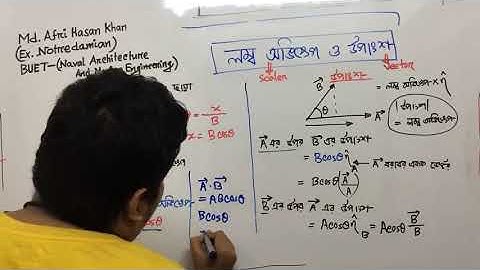 Md. Afri Hasan Khan
(Ex. Notredamian)
BUET-(Naval Architecture
And Engineering)
লম্ব অভিক্ষেপ ও উপাংশ
Scalar
Vector
ছাড়া
x
B
= Bcosθ
B⃗ উপাংশ
θ
A⃗
= লম্ব অভিক্ষেপ × η̂
|উপাংশ|
= লম্ব অভিক্ষেপ
A⃗ এর উপর B⃗ এর উপাংশ
= Bcosθ η̂
A⃗ বরাবর একক ভেক্টর
= Bcosθ (A⃗/A)
B⃗ এর উপর A⃗ এর উপাংশ
= Acosθ η̂_B = Acosθ B⃗/B
A⃗·B⃗
= ABcosθ
Bcosθ